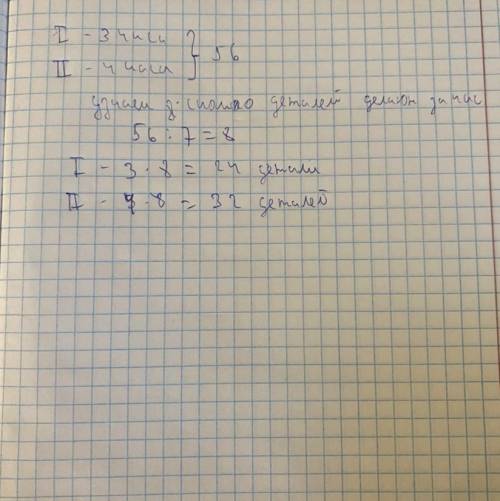 I - 3 часа } 56
II - 4 часа
узнаем сколько деталей за час
56 : 7 = 8
I - 3 · 8 = 24 детали
II - 4 · 8 = 32 деталей